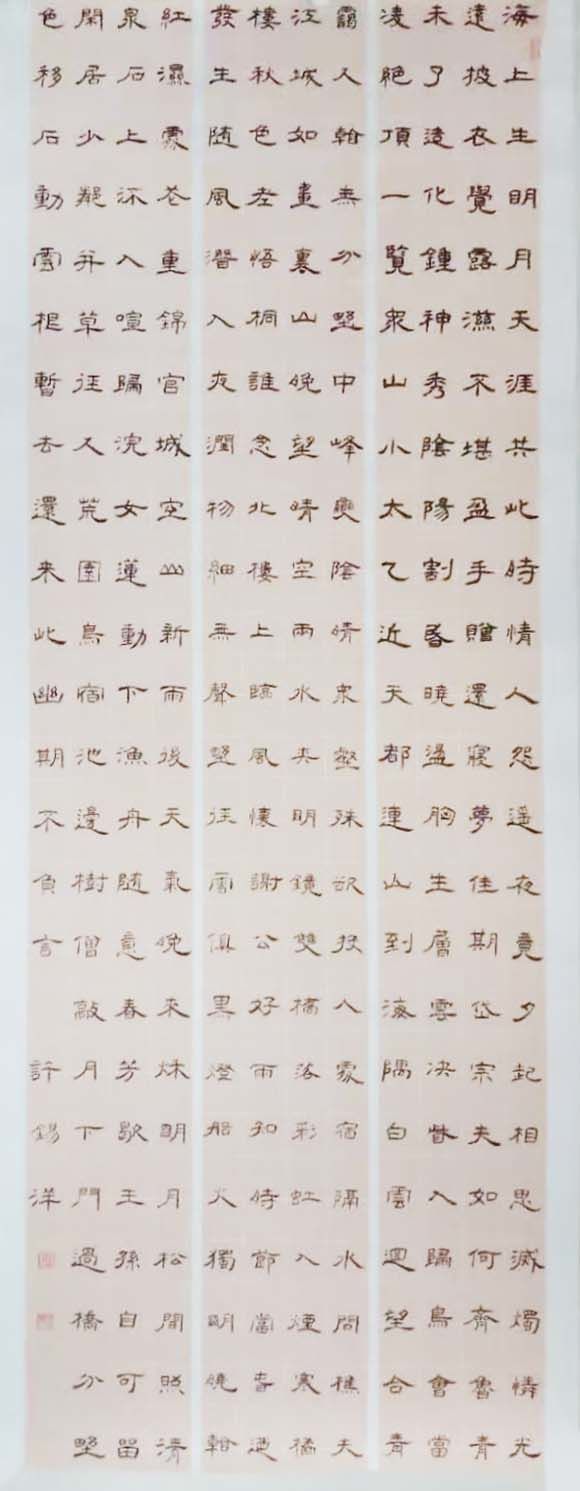 海上生明月天涯共此時情人怨遥夜竟夕起相思滅燭憐光
遠披衣覺露滋不堪盈手贈還寢夢佳期岱宗夫如何齊魯青
未了造化鍾神秀陰陽割昏曉盪胸生層雲決眥入歸鳥會當
凌絕頂一覽衆山小太乙近天都連山到海隅白雲迴望合青
靄入看無分野中峰變陰晴衆壑殊欲投人處宿隔水問樵夫
江城如畫裏山晚望晴空雨水夾明鏡雙橋落彩虹人煙寒橘
樓秋色老梧桐誰念北樓上臨風懷謝公好雨知時節當春迺
發生隨風潛入夜潤物細無聲野徑雲俱黑燈船火獨明曉看
紅濕處花重錦官城空山新雨後天氣晚來秋明月松間照清
泉石上流入喧歸浣女蓮動下漁舟隨意春芳歇王孫自可留
閑居少鄰并草徑入荒園鳥宿池邊樹僧敲月下門過橋分野
色移石動雲根暫去還来此幽期不負言
許錫洋